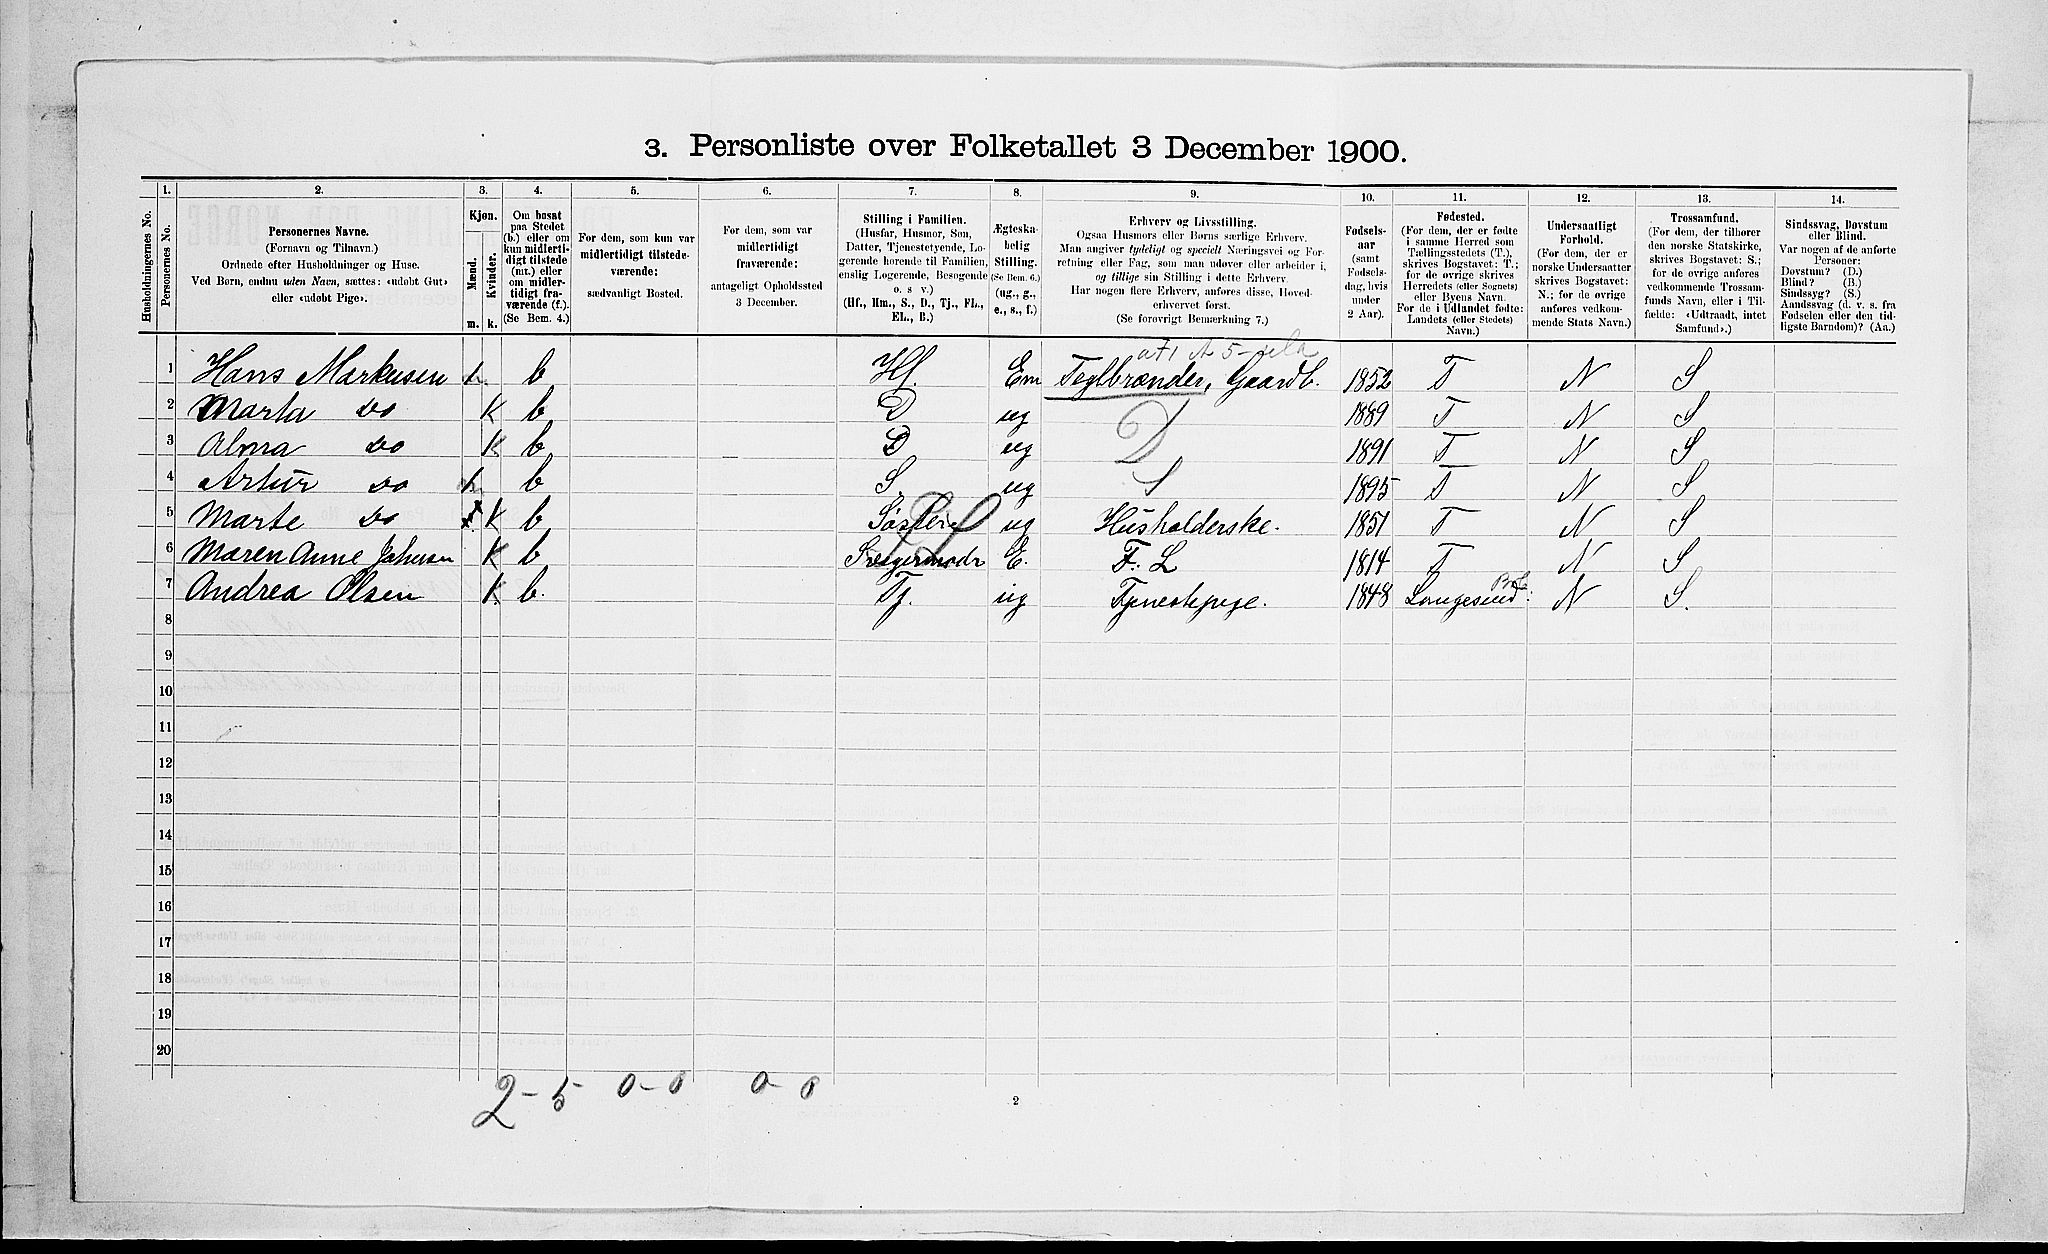 3. Personliste over Folketallet 3 December 1900.
Husholdningernes No.
1. Personernes No.
2. Personernes Navne. (Fornavn og Tilnavn.) Ordnede efter Husholdninger og Huse. Ved Børn, endnu uden Navn, sættes: «udøbt Gut» eller «udøbt Pige».
3. Kjøn. Mænd. m. Kvinder. k.
4. Om bosat paa Stedet (b.) eller om kun midlertidigt tilstede (mt.) eller om midlertidigt fraværende (f.). (Se Bem. 4.)
5. For dem, som kun var midlertidigt tilstedeværende: sædvanligt Bosted.
6. For dem, som var midlertidigt fraværende: antageligt Opholdssted 3 December.
7. Stilling i Familien. (Husfar, Husmor, Søn, Datter, Tjenestetyende, Logerende hørende til Familien, enslig Logerende, Besøgende o. s v.) (Hf., Hm., S., D., Tj., FL., EL., B.)
8. Ægteskabelig Stilling. (Se Bem. 6.) (ug., g., e., s., f.)
9. Erhverv og Livsstilling. Ogsaa Husmors eller Børns særlige Erhverv. Man angiver tydeligt og specielt Næringsvei og Forretning eller Fag, som man udøver eller arbeider i, og tillige sin Stilling i dette Erhverv. Har nogen flere Erhverv, anføres disse, Hovederhvervet først. (Se forøvrigt Bemærkning 7.)
10. Fødselsaar (samt Fødselsdag, hvis under 2 Aar).
11. Fødested. (For dem, der er fødte i samme Herred som Tællingsstedets (T.), skrives Bogstavet: T.; for de øvrige skrives Herredets (eller Sognets) eller Byens Navn. For de i Udlandet fødte: Landets (eller Stedets) Navn.)
12. Undersaatligt Forhold. (For dem, der er norske Undersaatter skrives Bogstavet: N.; for de øvrige anføres vedkommende Stats Navn.)
13. Trossamfund. (For dem, der tilhører den norske Statskirke, skrives Bogstavet: S.; for de øvrige anføres vedkommende Trossamfunds Navn, eller i Tilfælde: «Udtraadt, intet Samfund».)
14. Sindssvag, Døvstum eller Blind. Var nogen af de anførte Personer: Døvstum? (D.) Blind? (B.) Sindssyg? (S.) Aandssvag (d. v. s. fra Fødselen eller den tidligste Barndom)? (Aa.)
1 Hans Markusen m. b Hf. Em Teglbrænder, Gaardb. 1852 T N S
2 Marta Do K b D ug 1889 T N S
3 Alma Do K b D ug D 1891 T N S
4 Artur Do m b S ug S 1895 T N S
5 Marte Do K b Søster ug Husholderske. 1851 T N S
6 Maren Anne Johnsen K b Svigermodr E. F. L 1814 T N S
7 Andrea Olsen K b. Tj. ug Tjenestepige. 1848 Langesund N S.
8
9
10
11
12
13
14
15
16
17
18
19
20
2-5 0-0 0-0
2